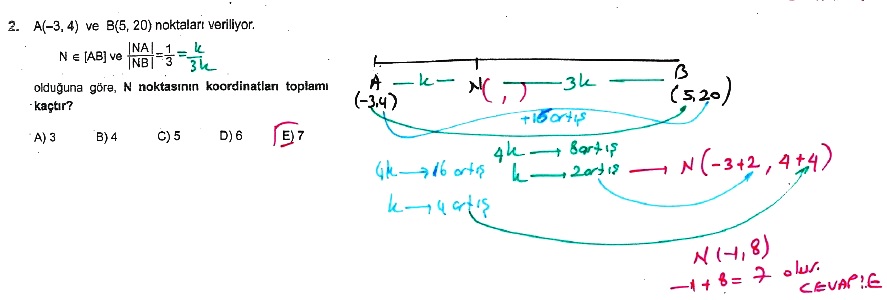 2. A(−3, 4) ve B(5, 20) noktaları veriliyor.
N ∈ [AB] ve |NA| / |NB| = 1/3 = k/3k
olduğuna göre, N noktasının koordinatları toplamı
kaçtır?
A) 3 B) 4 C) 5 D) 6 E) 7
A — k — N( , ) — 3k — B
(-3,4) (5,20)
+16 artış
4k → 8 artış
k → 2 artış → N(-3+2, 4+4)
4k → 16 artış
k → 4 artış
N(-1,8)
-1+8=7 olur.
CEVAP:E